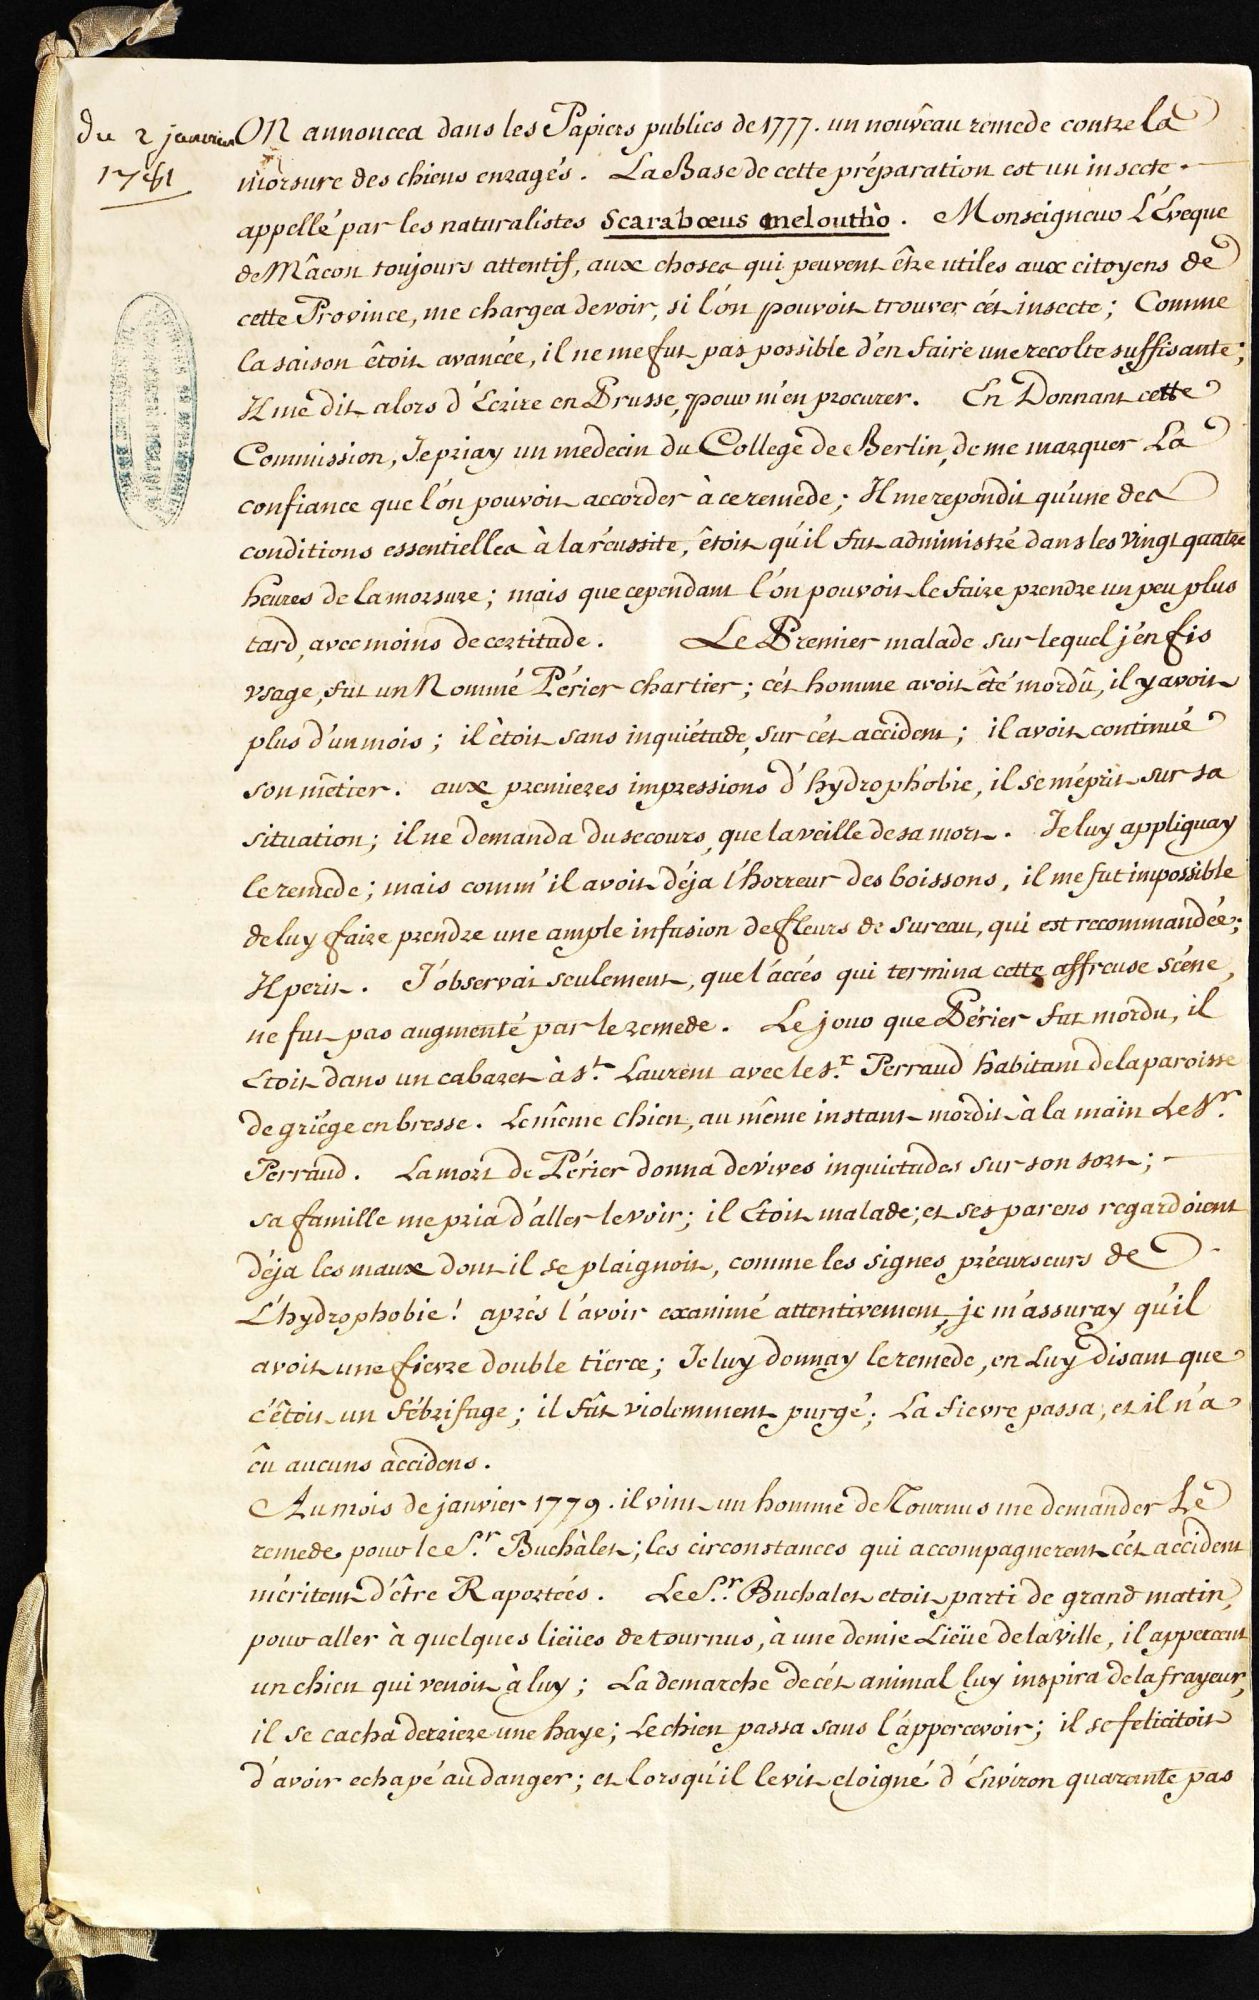 du 2 janvier
1781
ON annoncea dans les Papiers publics de 1777. un nouveau remede contre la
morsure des chiens enragés. La Base de cette préparation est un insecte
appellé par les naturalistes Scarabœus meloutho. Monseigneur L'Eveque
de Mâcon toujours attentif, aux choses qui peuvent être utiles aux citoyens de
cette Province, me chargea de voir, si l'on pouvoit trouver cét insecte; Comme
la saison êtoit avancée, il ne me fut pas possible d'en faire une recolte suffisante;
Il me dit alors d'Ecrire en Prusse, pour m'en procurer. En Donnant cette
Commission, Je priay un medecin du College de Berlin, de me marquer La
confiance que l'on pouvoit accorder à ce remede; Il me repondit qu'une des
conditions essentielles à la réussite, êtoit qu'il fut administré dans les vingt quatre
heures de la morsure; mais que cependant l'on pouvoit le faire prendre un peu plus
tard, avec moins de certitude. Le Premier malade sur lequel j'en fis
vsage, fut un Nommé Périer chartier; cét homme avoit êté mordû, il y avoit
plus d'un mois; il êtoit sans inquiétude, sur cét accident; il avoit continué
son mêtier. aux premieres impressions d'hydrophobie, il se méprit sur sa
situation; il ne demanda du secours, que la veille de sa mort. Je luy appliquay
le remede; mais comm'il avoit déja l'horreur des boissons, il me fut impossible
de luy faire prendre une ample infusion de fleurs de sureau, qui est recommandée;
Il perit. J'observai seulement, que l'accés qui termina cette affreuse scéne,
ne fut pas augmenté par le remede. Le jour que Périer fut mordu, il
Etoit dans un cabaret à St. Laurent avec le Sr. Perraud habitant de la paroisse
de griége en bresse. Le même chien, au même instant mordit à la main Le Sr.
Perraud. La mort de Périer donna de vives inquietudes sur son sort;
sa famille me pria d'aller le voir; il Etoit malade; et ses parens regardoient
déja les maux dont il se plaignoit, comme les signes précurseurs de
L'hydrophobie! aprés l'avoir examiné attentivement, je m'assuray qu'il
avoit une fievre double tierce; Je luy donnay le remede, en Luy disant que
c'êtoit un fébrifuge; il fût violemment purgé; La fievre passa, et il n'a
êu aucuns accidens.
Au mois de janvier 1779. il vint un homme de Tournus me demander Le
remede pour le Sr. Buchàlet; les circonstances qui accompagnerent cét accident
méritent d'être Raportées. Le Sr. Buchalet etoit parti de grand matin,
pour aller à quelques lieües de tournus, à une demie Lieüe de la ville, il apperceut
un chien qui venoit à luy; La demarche de cét animal luy inspira de la frayeur,
il se cacha derriere une haye; Le chien passa sans l'appercevoir; il se felicitoit
d'avoir echapé au danger; et lorsqu'il le vit eloigné d'Environ quarante pas